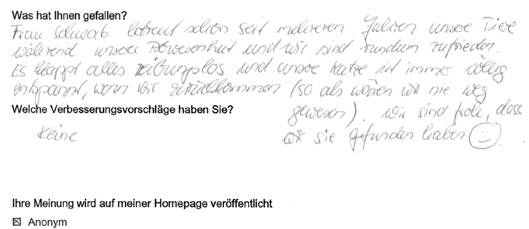 Was hat Ihnen gefallen?
Frau Schwarb betreut schon seit mehreren Jahren unsre Tiere
während unsrer Abwesenheit und wir sind rundum zufrieden.
Es klappt alles reibungslos und unsre Katze ist immer völlig
entspannt, wenn wir zurückkommen (so als wären wir nie weg
gewesen). Wir sind froh, dass
wir sie gefunden haben ☺.
Welche Verbesserungsvorschläge haben Sie?
Keine
Ihre Meinung wird auf meiner Homepage veröffentlicht
☒ Anonym